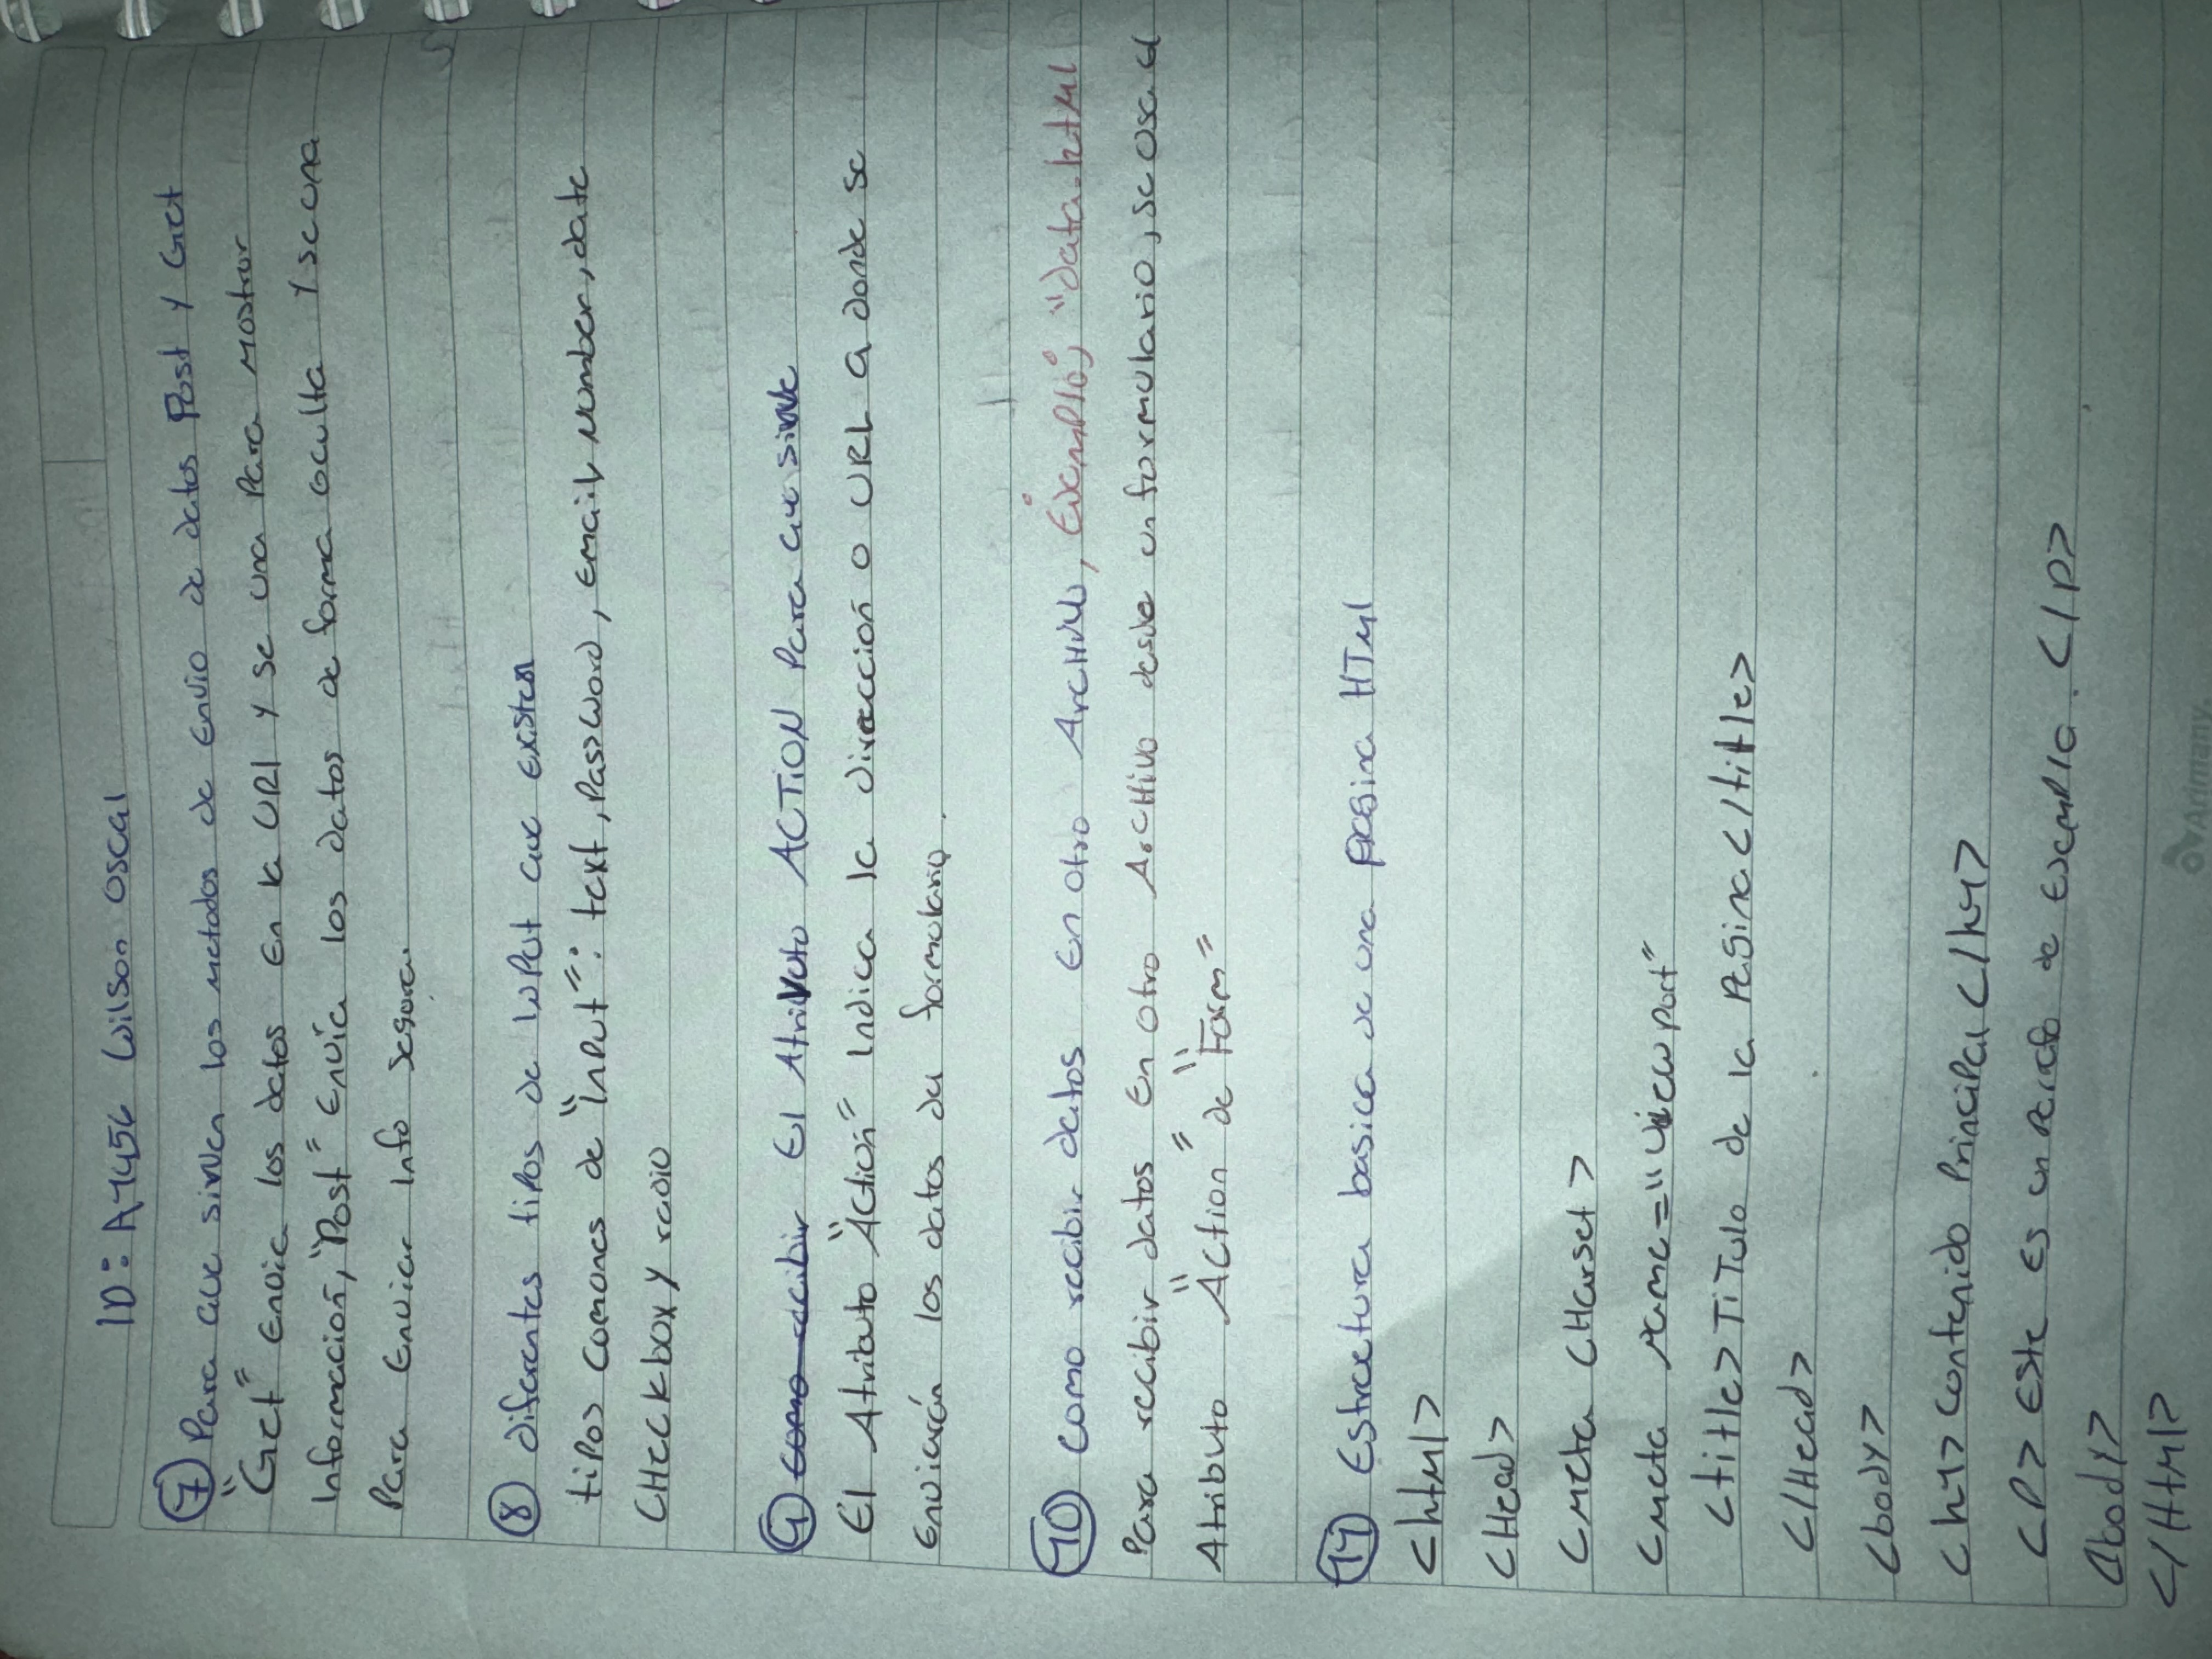 ID: A1456 Wilson Oscal
⑦ Para que sirven los metodos de Envio de datos Post y Get
"Get" Envia los datos En la URl y se una Para mostrar
Información, "Post" Envía los datos de forma oculta y se una
Para Enviar Info segura.
⑧ diferentes tipos de Input que Existen
tipos comunes de "Input": text, Password, Email, Number, date
CHeckbox y radio
⑨ El Atributo ACTION Para que sirve
El Atributo "Action" Indica la dirección o URL a donde se
Enviarán los datos del formulario.
⑩ como recibir datos En otro Archivo, Ejemplo; "data.html
Para recibir datos En otro Archivo desde un formulario, se usa el
Atributo "Action" de "Form"
⑪ Estructura basica de una Pagina HTML
<html>
<Head>
<meta CHarset>
<meta name="viewport"
<title> TiTulo de la Pagina</title>
</Head>
<body>
<h1> contenido Principal </h1>
<P> Este Es un Parrafo de Ejemplo. </P>
</body>
</Html>
Arimany